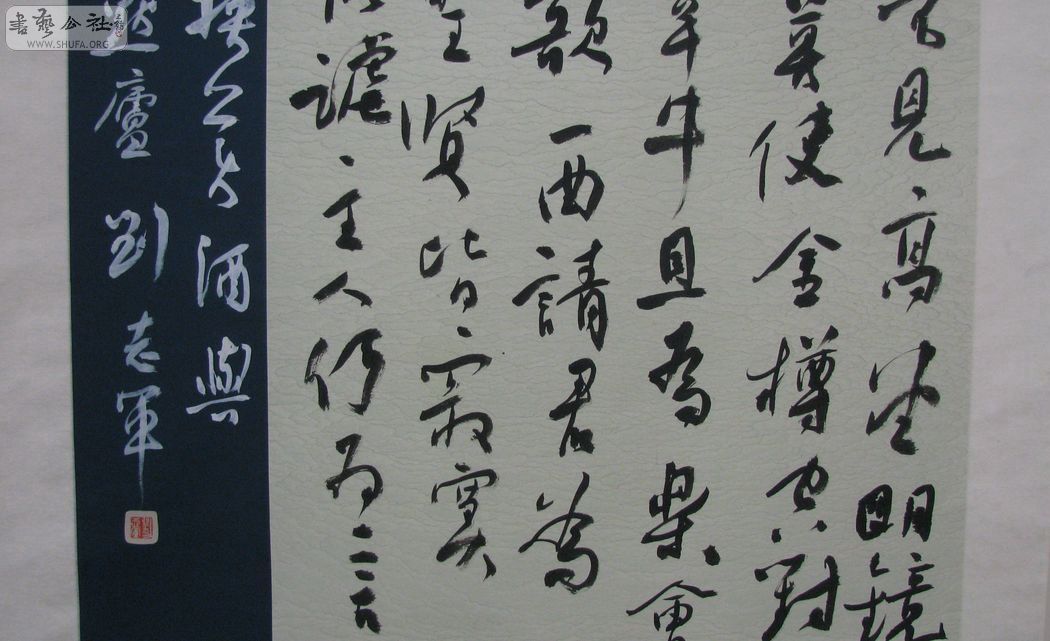 見高堂明鏡
莫使金樽空對
羊牛且為樂會
歌一曲請君為
聖賢皆寂寞
謔主人何為言
酒與
廬 劉志軍
書藝公社
WWW.SHUFA.ORG